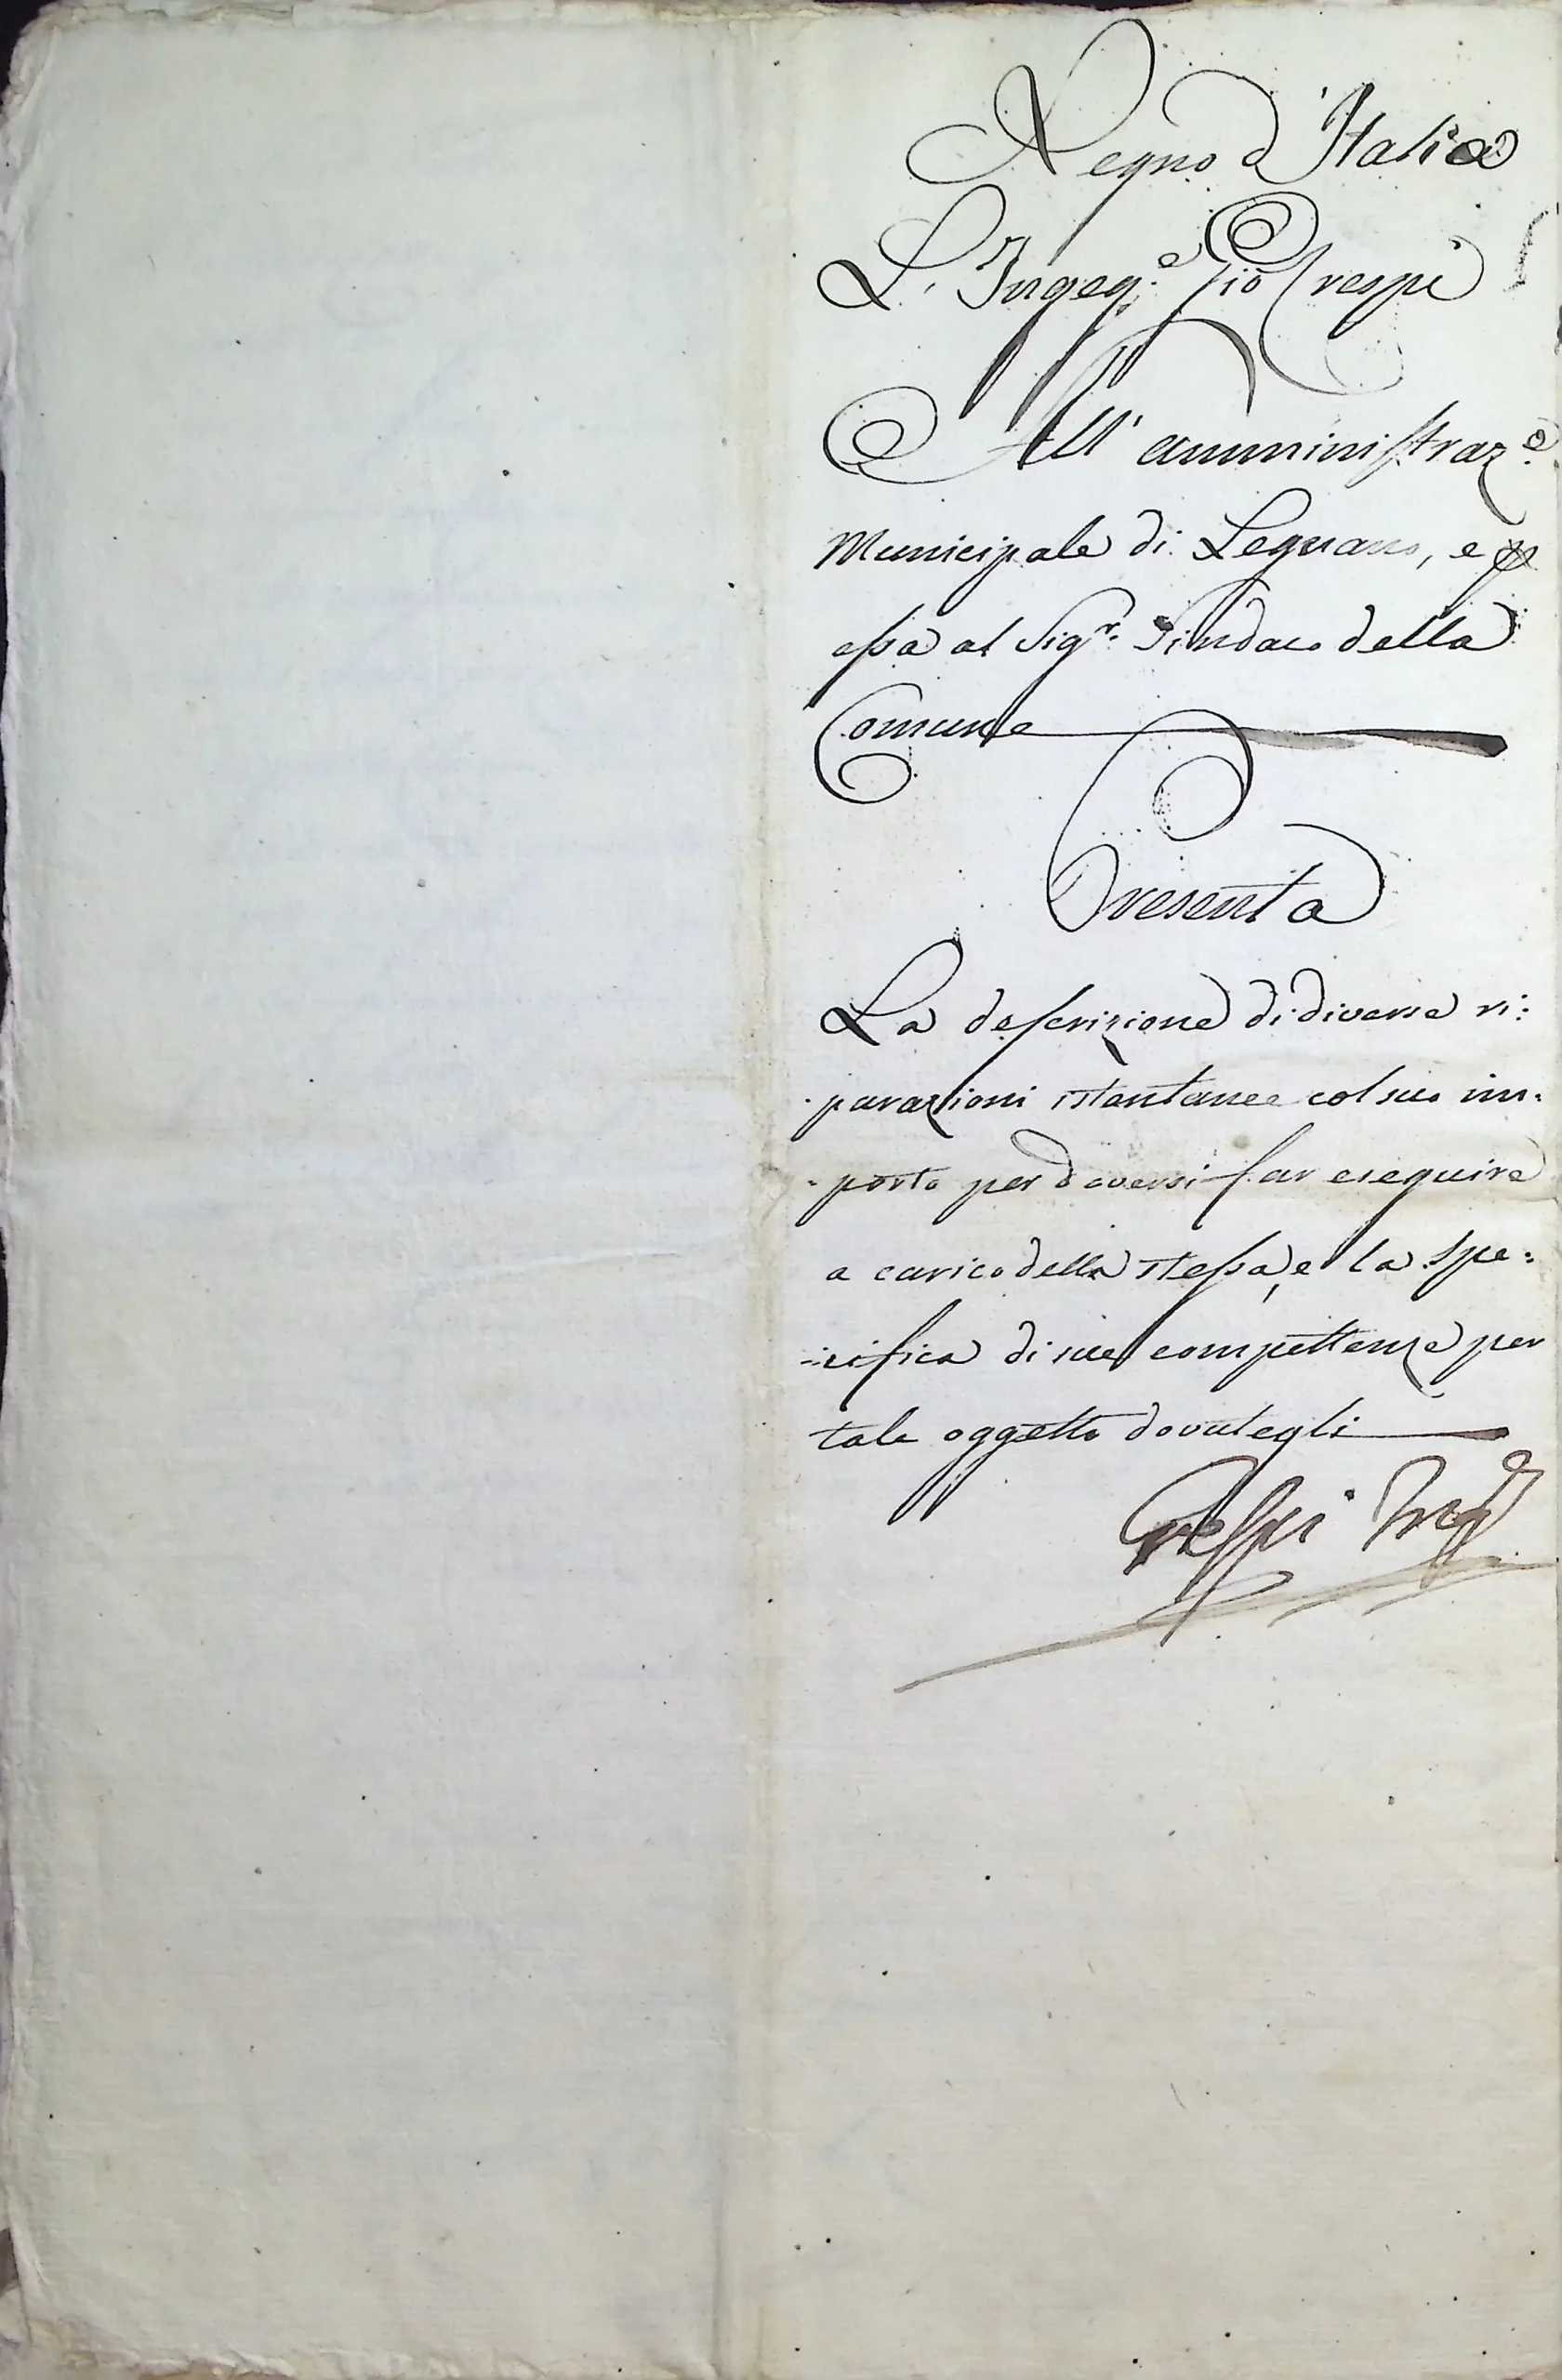 Regno d'Italia
L'Ingeg.e Gio Crespi
All' amministraz.e
Municipale di Legnano, e p
essa al Sig.r Sindaco della
Comune
Presenta
La descrizione di diverse ri:
parazioni istantanee col suo im-
porto per doversi far eseguire
a carico della stessa, e la spe:
cifica di sue compettenze per
tale oggetto dovutegli
Crespi Ing.e